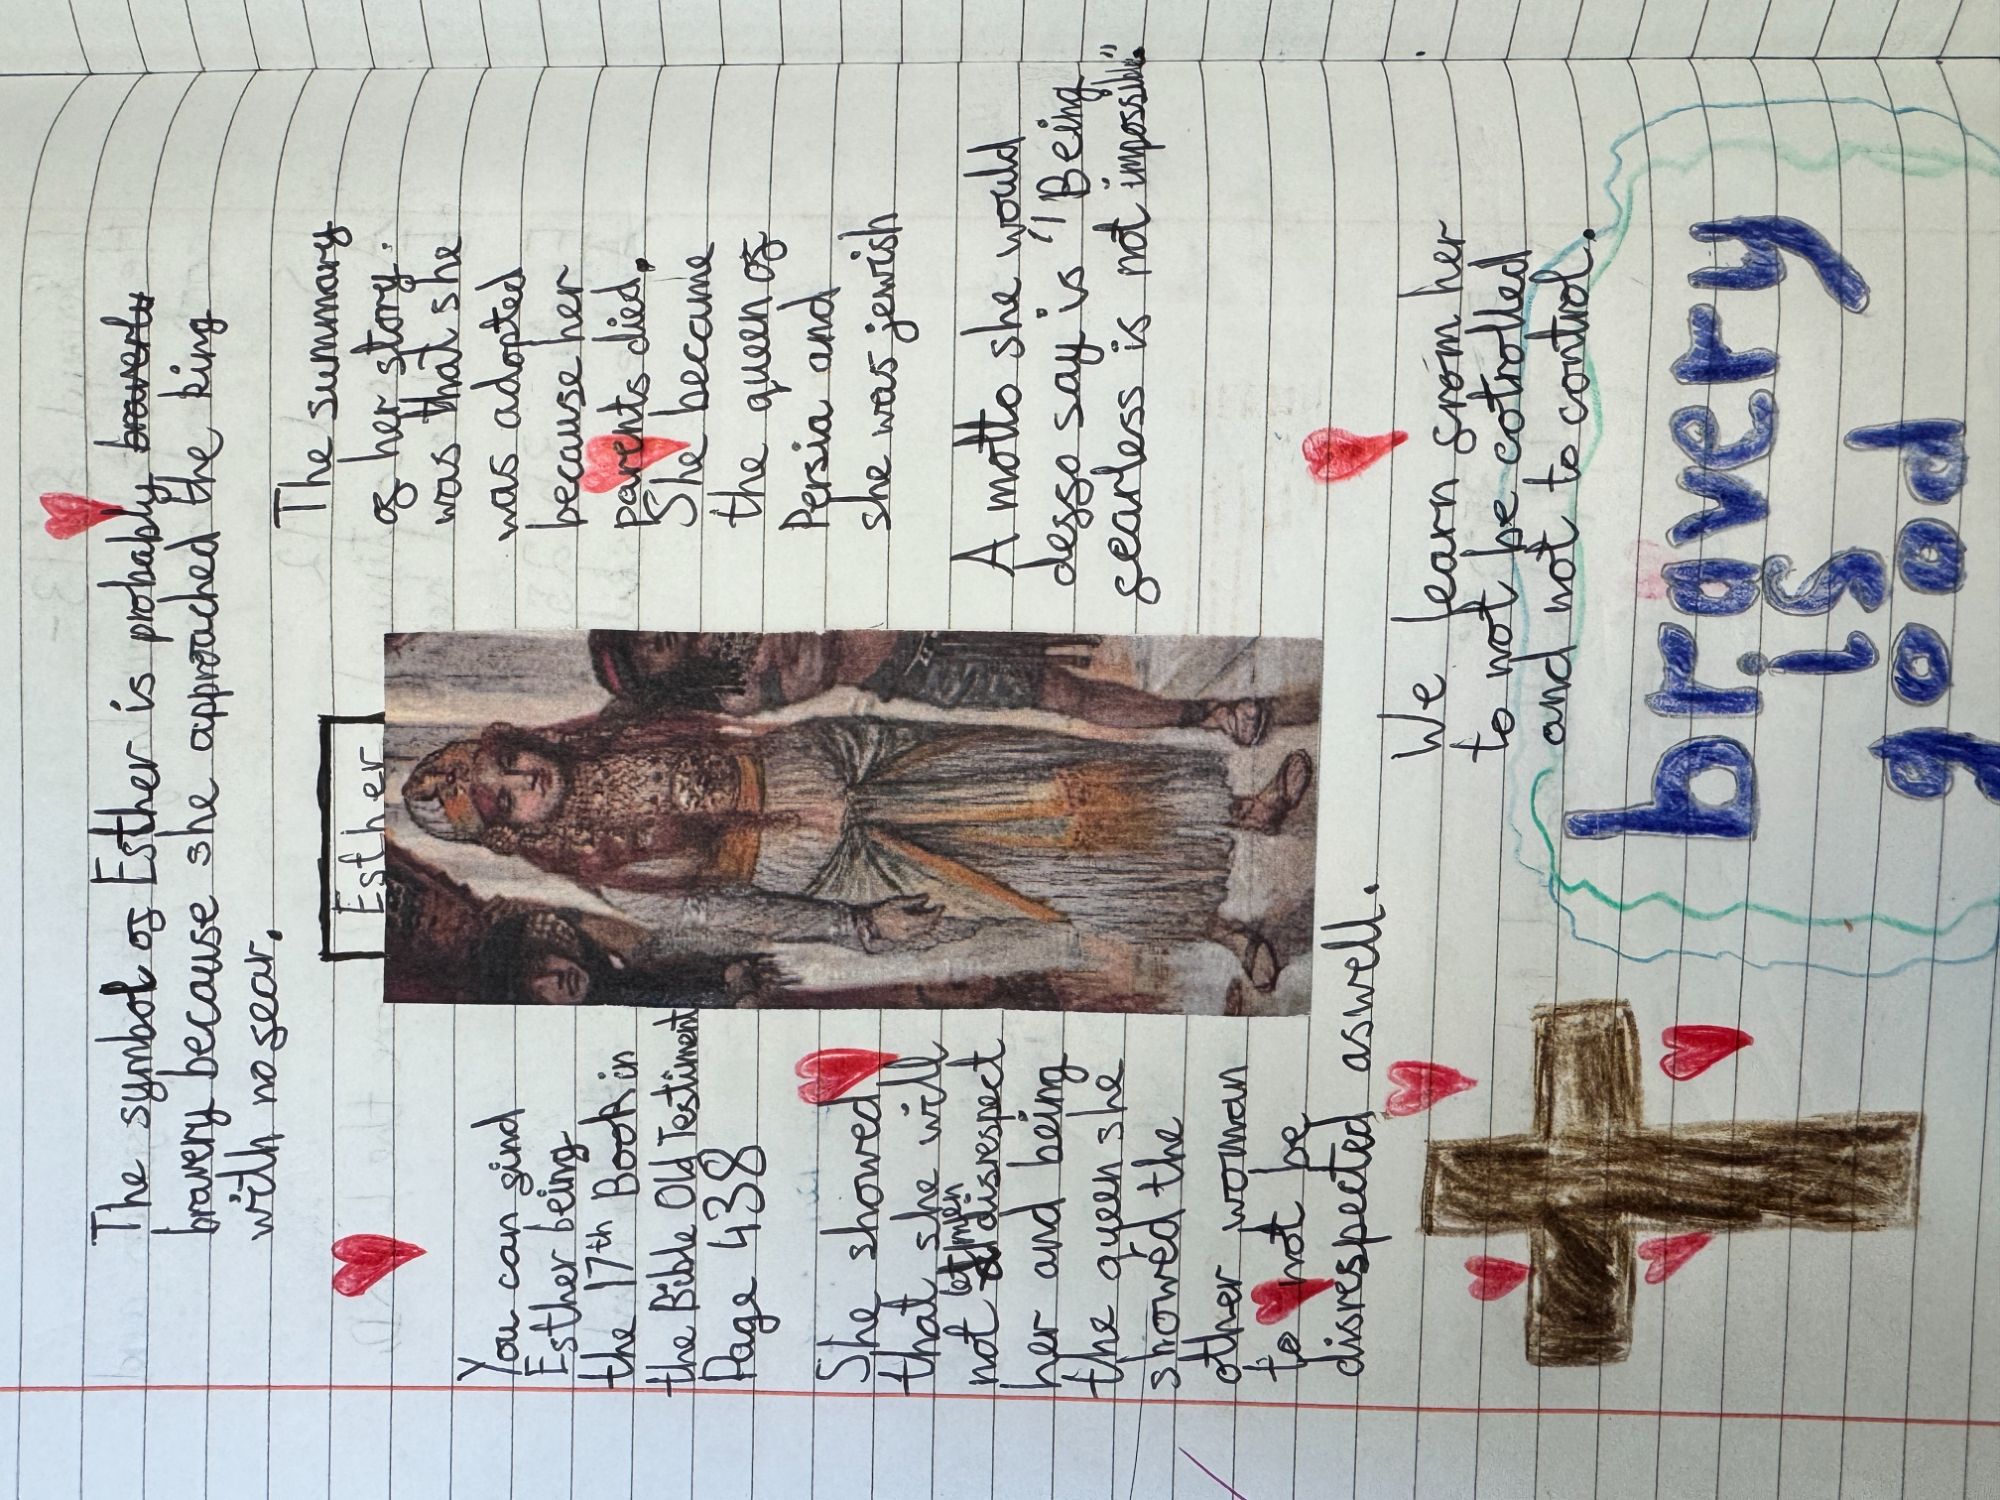 The symbol of Esther is probably braverly
bravery because she approached the king
with no fear.
Esther
You can find
Esther being
the 17th Book in
the Bible Old Testiment
Page 438
She showed
that she will
not let men disrespect
her and being
the queen she
showed the
other woman
to not be
disrespected aswell.
The summary
of her story
was that she
was adopted
because her
parents died.
She became
the queen of
Persia and
she was jewish
A motto she would
deffo say is "Being
fearless is not impossible."
We learn from her
to not be cotrolled
and not to control.
bravery
is
good